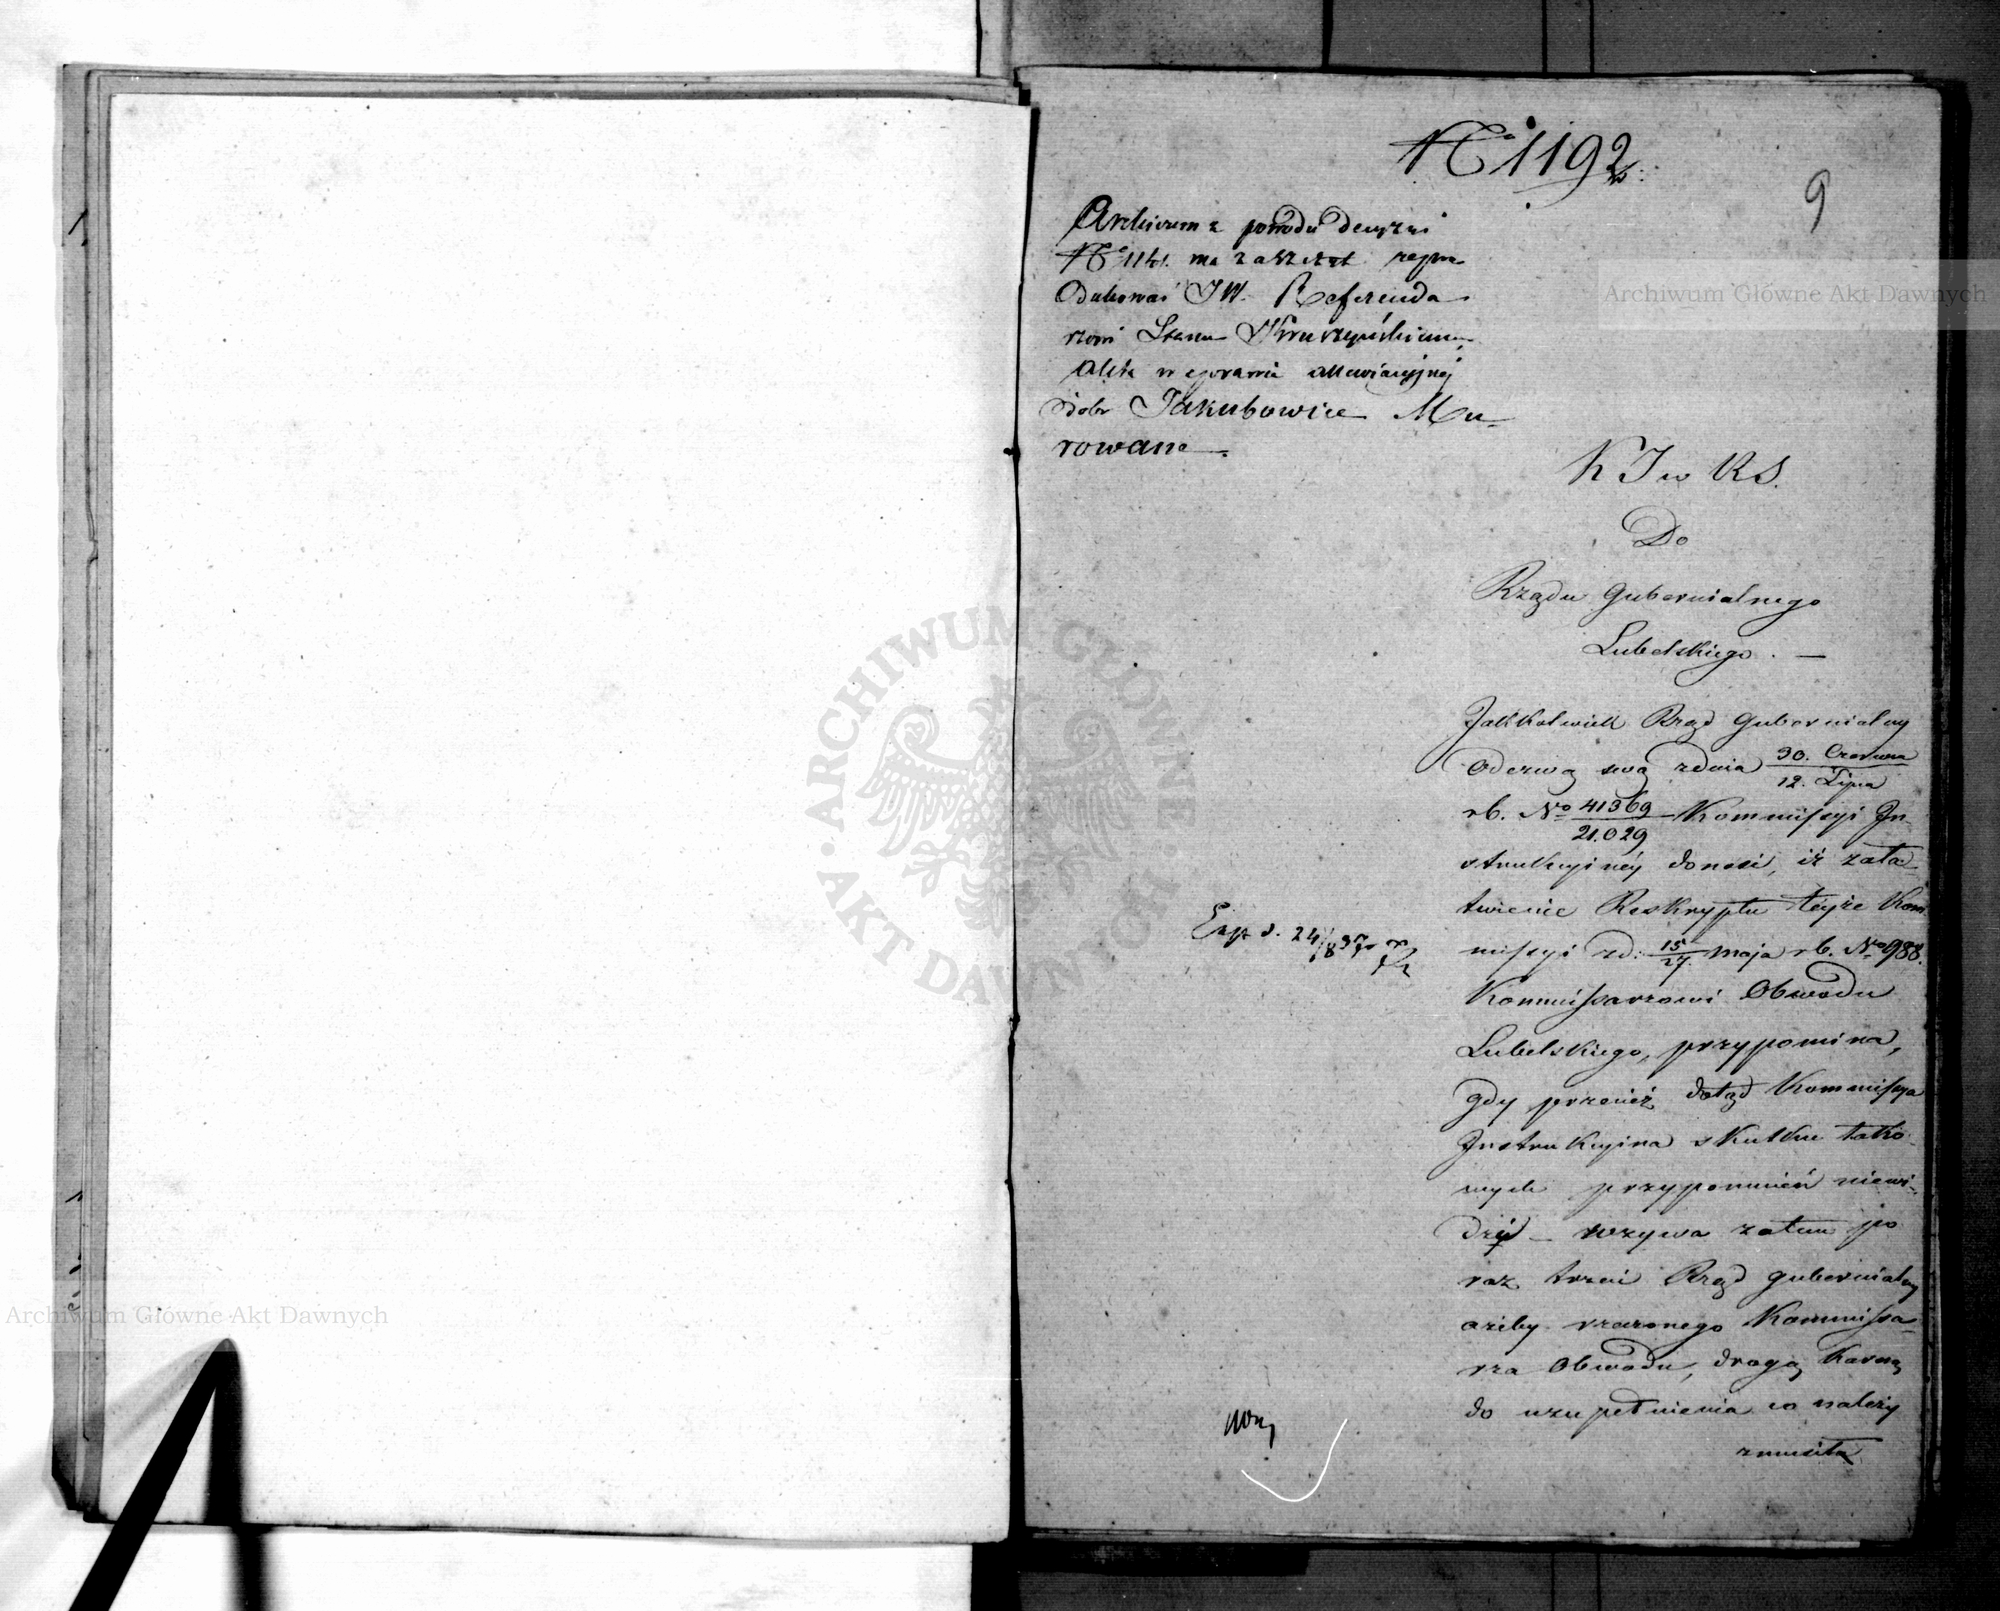 No 1192
9
Archiwum z powodu decyzyi
No 1141. ma zaszczyt repro
dukować JW. Referenda
rzowi Stanu Kruszyńskiemu
Akta w sprawie allewiacyjnej
dobr Jakubowice Mu-
rowane.
K J w KS.
Do
Rządu Gubernialnego
Lubelskiego. —
Jakkolwiek Rząd Gubernialny
Odezwą swą z dnia 30. Czerwca
12. Lipca
rb. No 41369
21.029
Kommissyi In-
strukcyjnéy donosi, iż zała-
twienie Reskryptu téyże Kom
missyi z d: 15/27 maja rb. No 988.
Kommissarzowi Obwodu
Lubelskiego, przypomina,
gdy przecież dotąd Kommissya
Instrukcyjna skutku tako-
wych przypomnień niewi-
dzi — wzywa zatem po
raz trzeci Rząd Gubernialny
ażeby rzeczonego Kommissa-
rza Obwodu, drogą karną
do uzupełnienia co należy
zmusił
Exp d. 24/8 37
Archiwum Główne Akt Dawnych
Archiwum Główne Akt Dawnych
ARCHIWUM GŁÓWNE AKT DAWNYCH